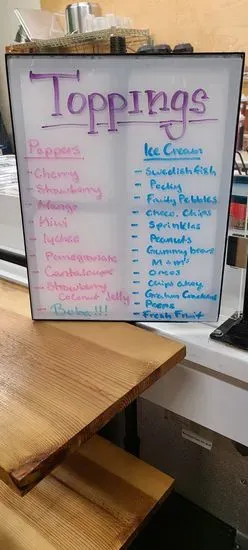 Toppings
Poppers
- Cherry
- Strawberry
- Mango
- Kiwi
- lychee
- Pomegranate
- Cantaloupe
- Strawberry
Coconut Jelly
Boba!!!
Ice Cream
- Swedish fish
- Pocky
- Fruity Pebbles
- Choco. Chips
- Sprinkles
- Peanuts
- Gummy bears
- M+M's
- Oreos
- Chips ahoy
- Graham Crackers
- Fresh Fruit